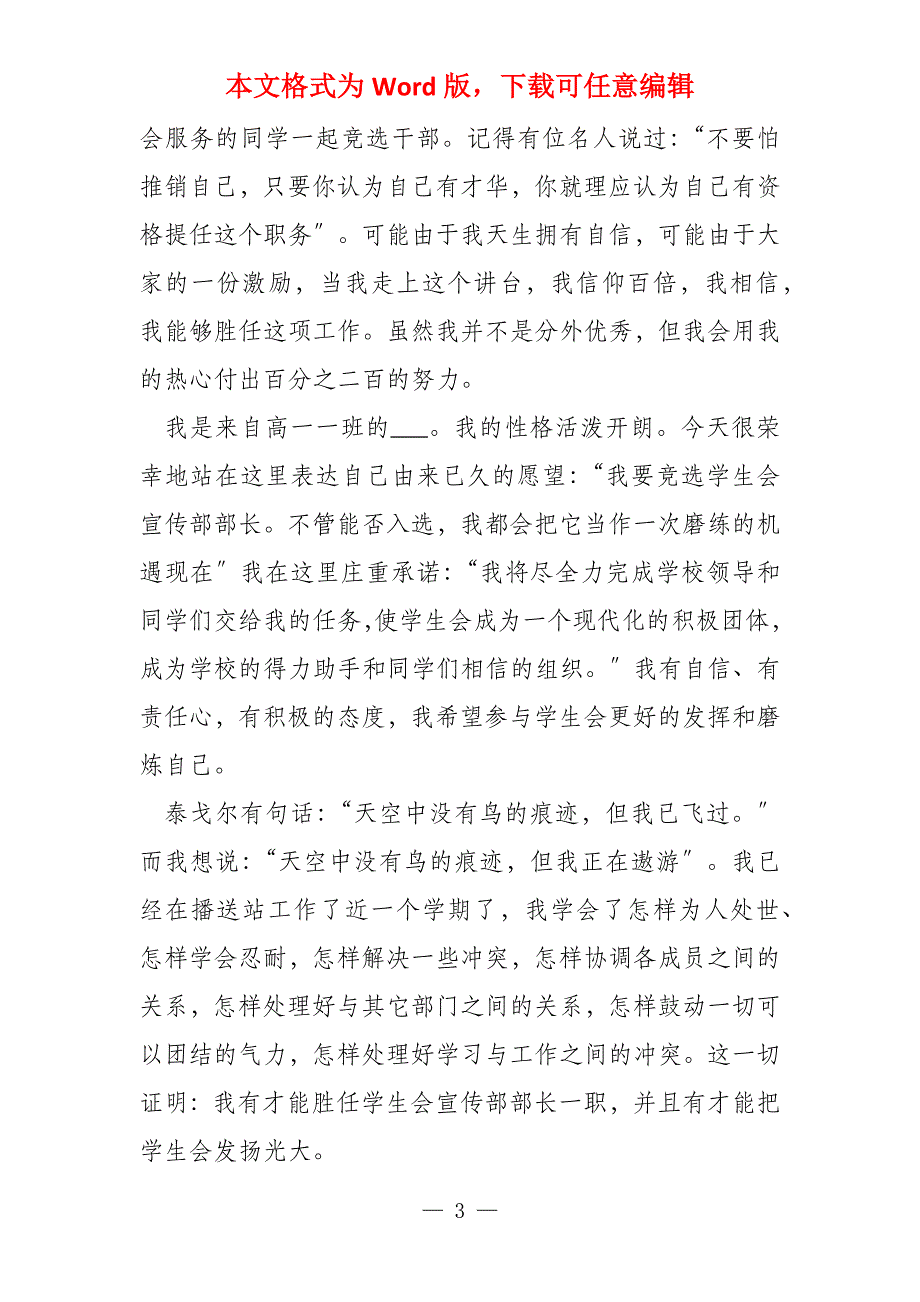 本文格式为 Word 版，下载可任意编辑
会服务的同学一起竞选干部。记得有位名人说过：“不要怕
推销自己，只要你认为自己有才华，你就理应认为自己有资
格提任这个职务〞。可能由于我天生拥有自信，可能由于大
家的一份激励，当我走上这个讲台，我信仰百倍，我相信，
我能够胜任这项工作。虽然我并不是分外优秀，但我会用我
的热心付出百分之二百的努力。
我是来自高一一班的___。我的性格活泼开朗。今天很荣
幸地站在这里表达自己由来已久的愿望：“我要竞选学生会
宣传部部长。不管能否入选，我都会把它当作一次磨练的机
遇现在〞我在这里庄重承诺：“我将尽全力完成学校领导和
同学们交给我的任务,使学生会成为一个现代化的积极团体，
成为学校的得力助手和同学们相信的组织。〞我有自信、有
责任心，有积极的态度，我希望参与学生会更好的发挥和磨
炼自己。
泰戈尔有句话：“天空中没有鸟的痕迹，但我已飞过。〞
而我想说：“天空中没有鸟的痕迹，但我正在遨游〞。我已
经在播送站工作了近一个学期了，我学会了怎样为人处世、
怎样学会忍耐，怎样解决一些冲突，怎样协调各成员之间的
关系，怎样处理好与其它部门之间的关系，怎样鼓动一切可
以团结的气力，怎样处理好学习与工作之间的冲突。这一切
证明：我有才能胜任学生会宣传部部长一职，并且有才能把
学生会发扬光大。
— 3 —